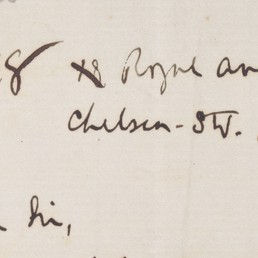 8 18 Royal Av
Chelsea-SW.
Sir,